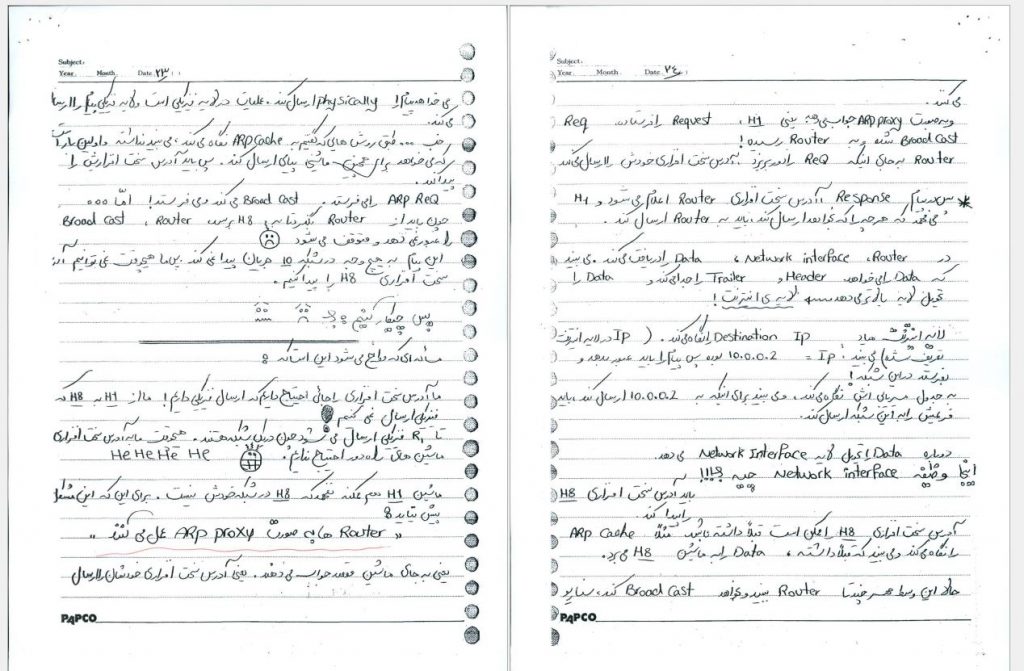 Subject:
Year. Month. Date. ۲۳
می خواهد پیام را physically ارسال کند. عملیات در لایه فیزیکی است و لایه فیزیکی پیام را ارسال
می کند.
خب ... طبق روش هایی که گفتیم به ARP Cache نگاه می کند، می بیند نداشته و اولین بار است
که می خواهد برای همچین ماشینی پیامی ارسال کند. پس باید آدرس سخت افزاریش را
پیدا کند.
ARP Req را می فرستد. Broad Cast می کند و می فرستد! امّا ...
چون باید از Router بگذرد تا به H8 برسد، Router ، Broad Cast
را عبور نمی دهد و متوقف می شود
این پیام به هیچ وجه در شبکه 10 جریان پیدا نمی کند. پس ما هیچوقت نمی توانیم آدرس
سخت افزاری H8 را پیدا کنیم.
پس چیکار کنیم؟
مسئله ای که مطرح می شود این است که :
ما آدرس سخت افزاری را جائی احتیاج داریم که ارسال فیزیکی داریم! ما از H1 به H8 که
فیزیکی ارسال نمی کنیم!
تا R1 فیزیکی ارسال می شود چون در یک شبکه هستند. هیچوقت ما به آدرس سخت افزاری
ماشین های راه دور احتیاج نداریم. He He He He
ماشین H1 فهمد که H8 در شبکه خودش نیست. برای این که این مشکل
پیش نیاید :
« Router ها به صورت ARP proxy عمل می کنند »
یعنی به جای ماشین مقصد جواب می دهند. یعنی آدرس سخت افزاری خودشان را ارسال
PAPCO
Subject:
Year. Month. Date. ۲۴
می کنند.
و به صورت ARP proxy جواب می دهد یعنی H1 ، Request را فرستاده، Req
Broad Cast شده و به Router رسیده!
Router به جای اینکه Req را دور بریزد، آدرس سخت افزاری خودش را ارسال می کند
* پس در پیام Response آدرس سخت افزاری Router اعلام می شود و H1
می فهمد که هر چه را که بخواهد ارسال کند، باید به Router ارسال کند.
در Router ، Network interface ، Data را دریافت می کند. می بیند
که Data را می خواهد Header و Trailer را جدا می کند و Data را
تحویل لایه بالاتر می دهد لایه ی اینترنت!
لایه اینترنت Destination Ip را نگاه می کند. (Ip در لایه اینترنت
تعریف شده) می بیند: Ip = 10.0.0.2 بوده پس پیام را باید عبور بدهد و
بفرستد در این شبکه!
به جدول مسیریابی اش نگاه می کند، می بیند برای اینکه به 10.0.0.2 ارسال کند، باید
به این شبکه ارسال کند.
دوباره Data را تحویل لایه Network Interface می دهد.
اینجا وظیفه Network interface چیه؟!!!
باید آدرس سخت افزاری H8
را پیدا کند.
آدرس سخت افزاری H8 را ممکن است قبلاً داشته باشد. مثلاً ARP Cache
را نگاه می کند و می بیند که قبلاً داشته، Data را به ماشین H8 می برد.
حالا این وسط Router ببیند و بخواهد Broad Cast کند،
PAPCO